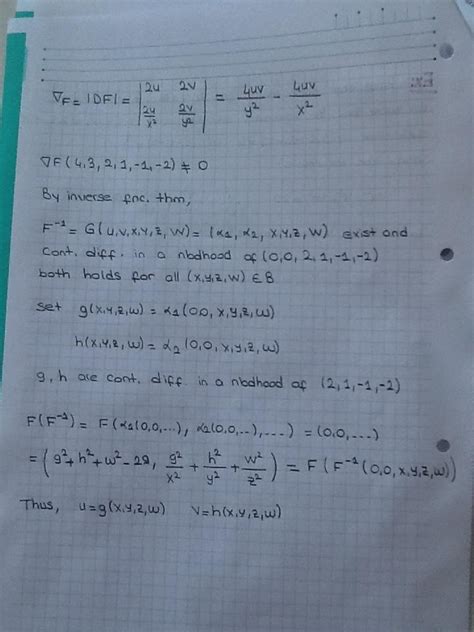 ∇F = |DF| = | 2u 2v ; 2u/x² 2v/y² | = 4uv/y² - 4uv/x²
∇F(4,3,2,1,-1,-2) ≠ 0
By inverse fnc. thm,
F⁻¹ = G(u,v,x,y,z,w) = (α₁, α₂, x,y,z,w) exist and
cont. diff. in a nbdhood of (0,0,2,1,-1,-2)
both holds for all (x,y,z,w) ∈ B
set g(x,y,z,w) = α₁(0,0,x,y,z,w)
h(x,y,z,w) = α₂(0,0,x,y,z,w)
g,h are cont. diff. in a nbdhood of (2,1,-1,-2)
F(F⁻¹) = F(α₁(0,0,...), α₂(0,0,...),...) = (0,0,...)
= (g²+h²+w²-29, g²/x² + h²/y² + w²/z²) = F(F⁻¹(0,0,x,y,z,w))
Thus, u=g(x,y,z,w) v=h(x,y,z,w)